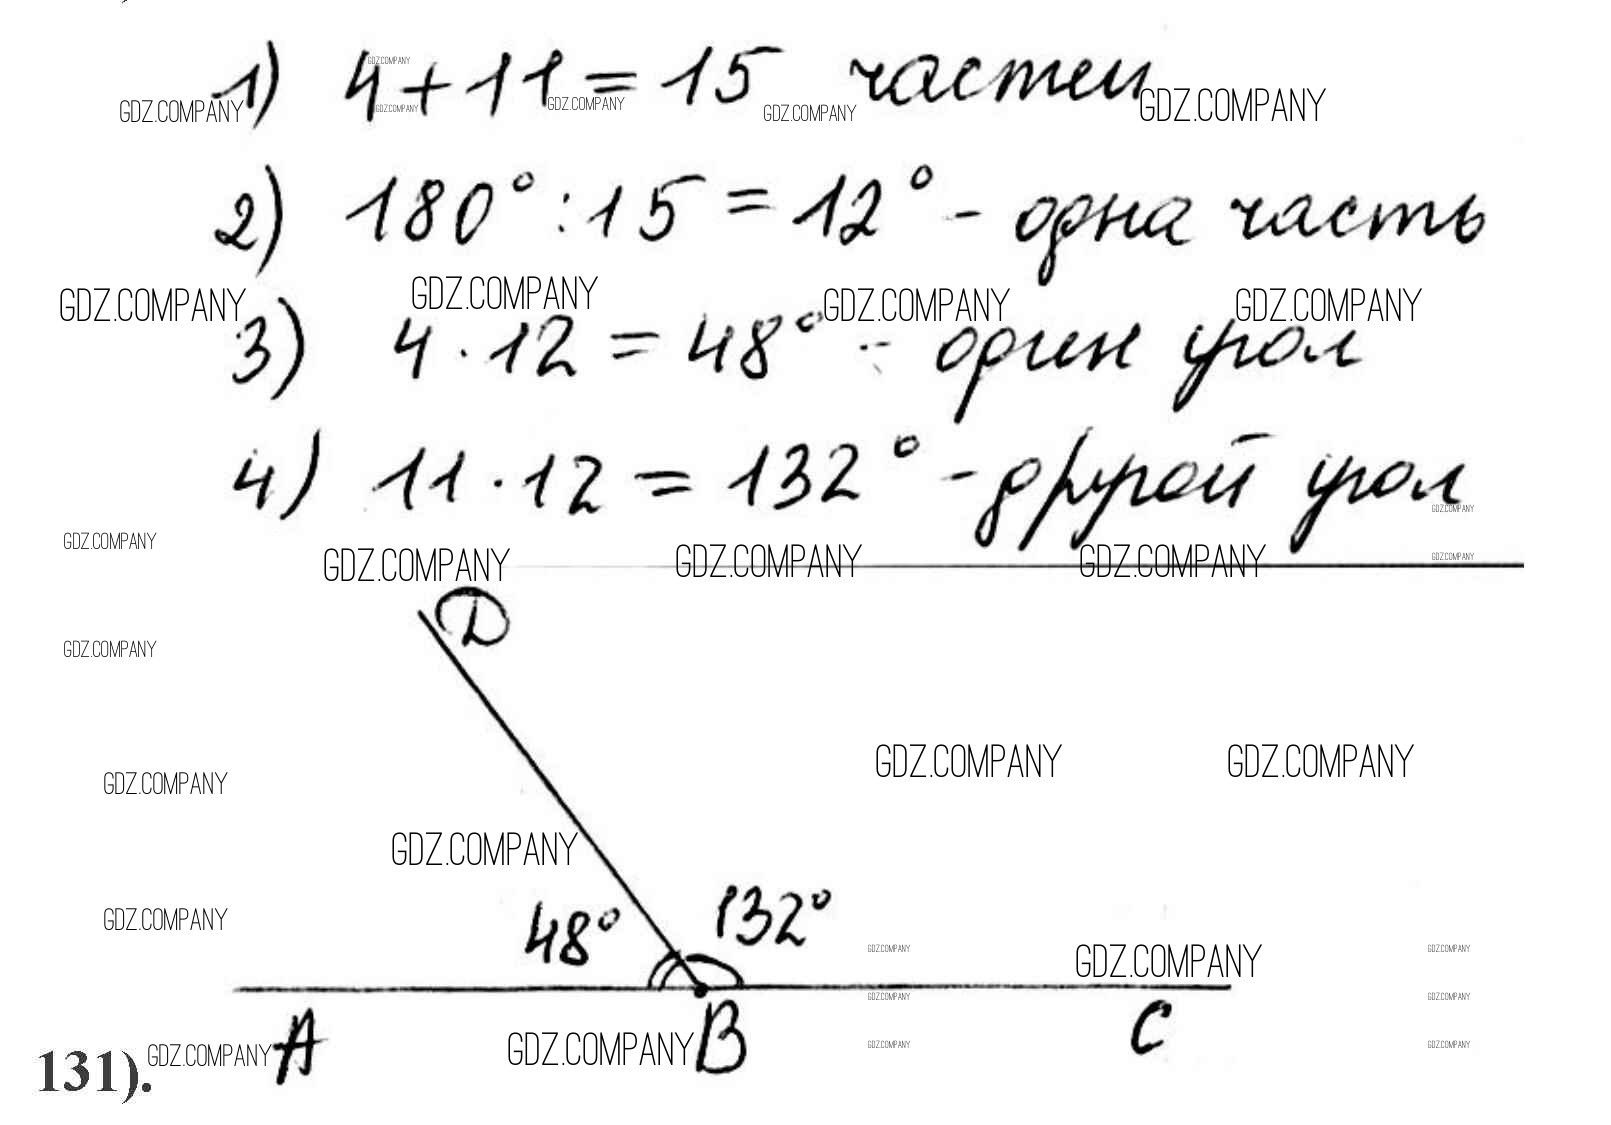 1) 4+11=15 частей
2) 180°:15=12° - одна часть
3) 4·12=48° - один угол
4) 11·12=132° - другой угол
D
48° 132°
A B C
131).
GDZ.COMPANY